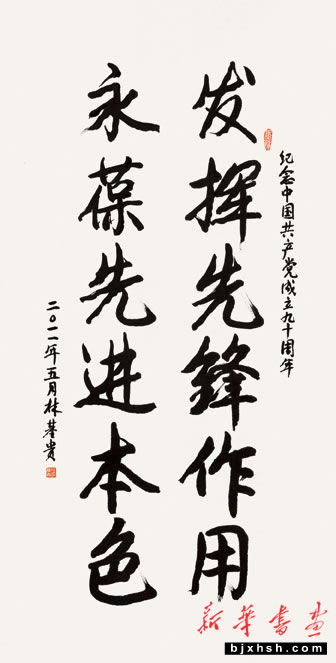 纪念中国共产党成立九十周年
发挥先锋作用
永葆先进本色
二〇一一年五月林基贵
新华书画
www.bjxhsh.com